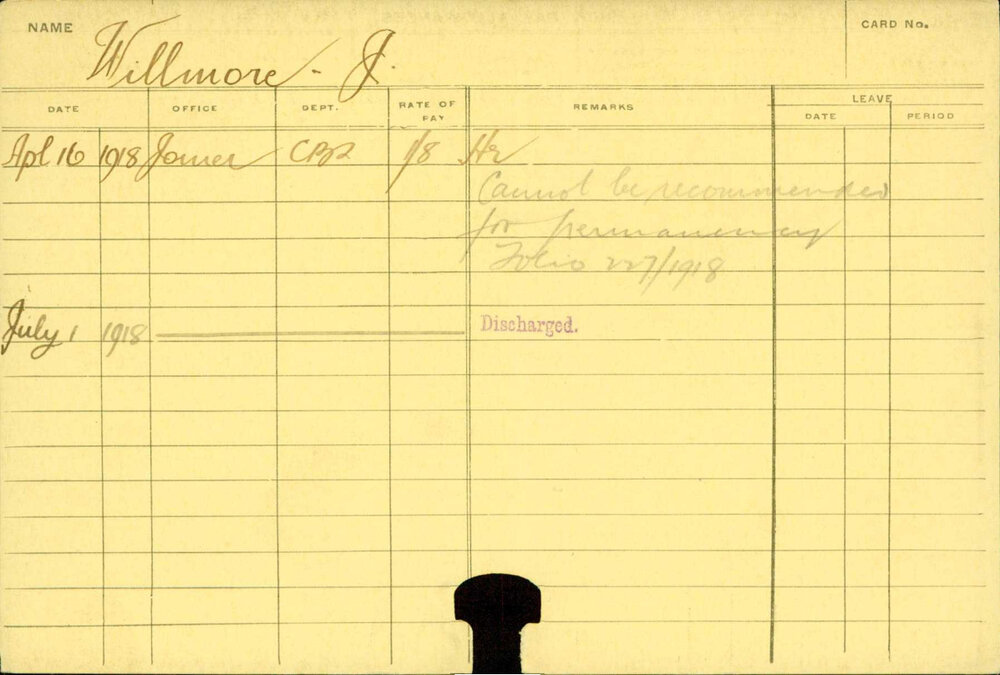 NAME Willmore - J. CARD No.
DATE OFFICE DEPT. RATE OF PAY REMARKS LEAVE
DATE PERIOD
Apl 16 1918 Joiner 1/8 Hr
Cannot be recommended
for permanency
Folio 227/1918
July 1 1918 Discharged.